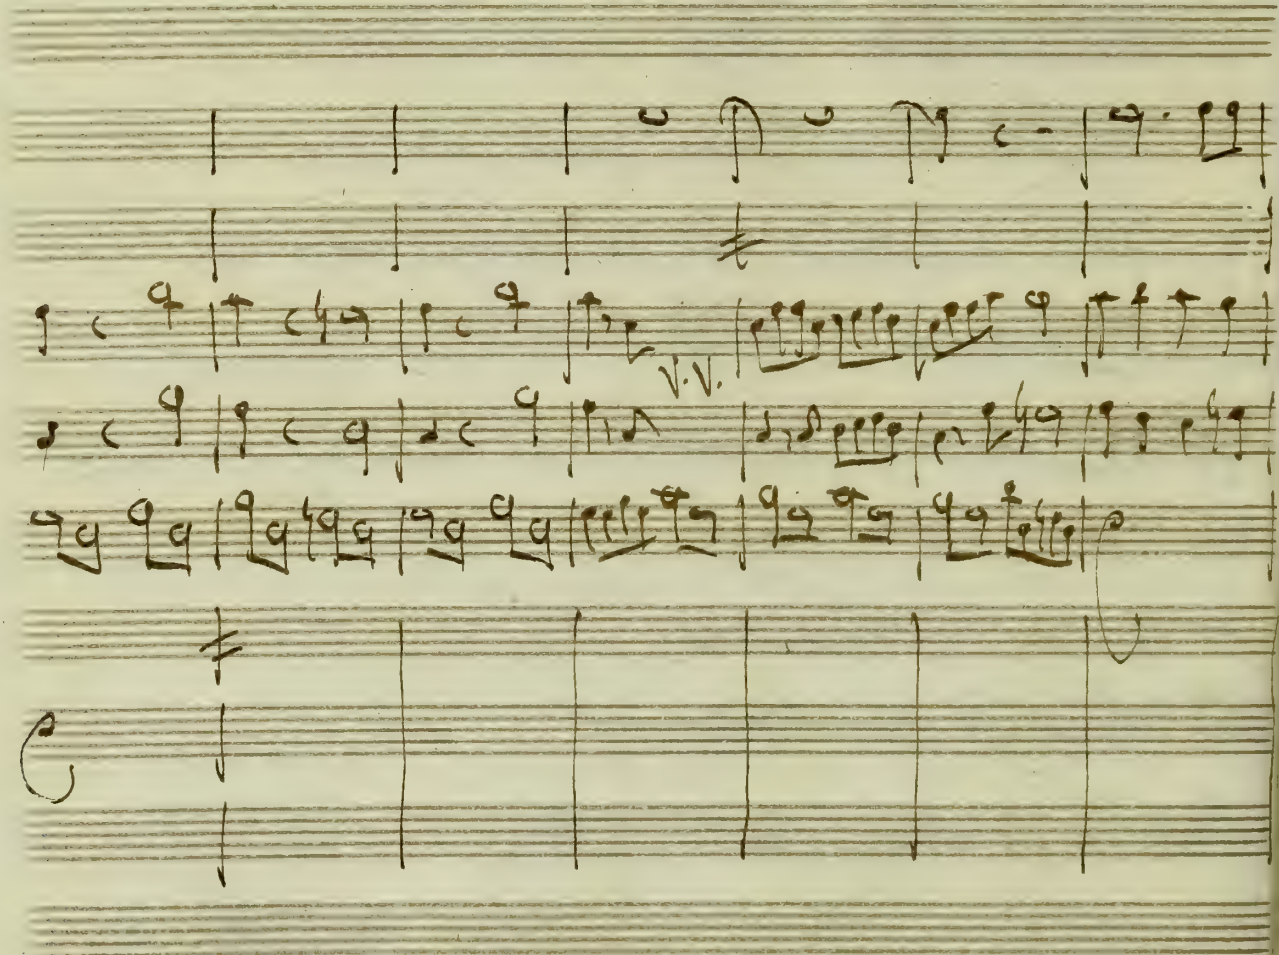 V. V.